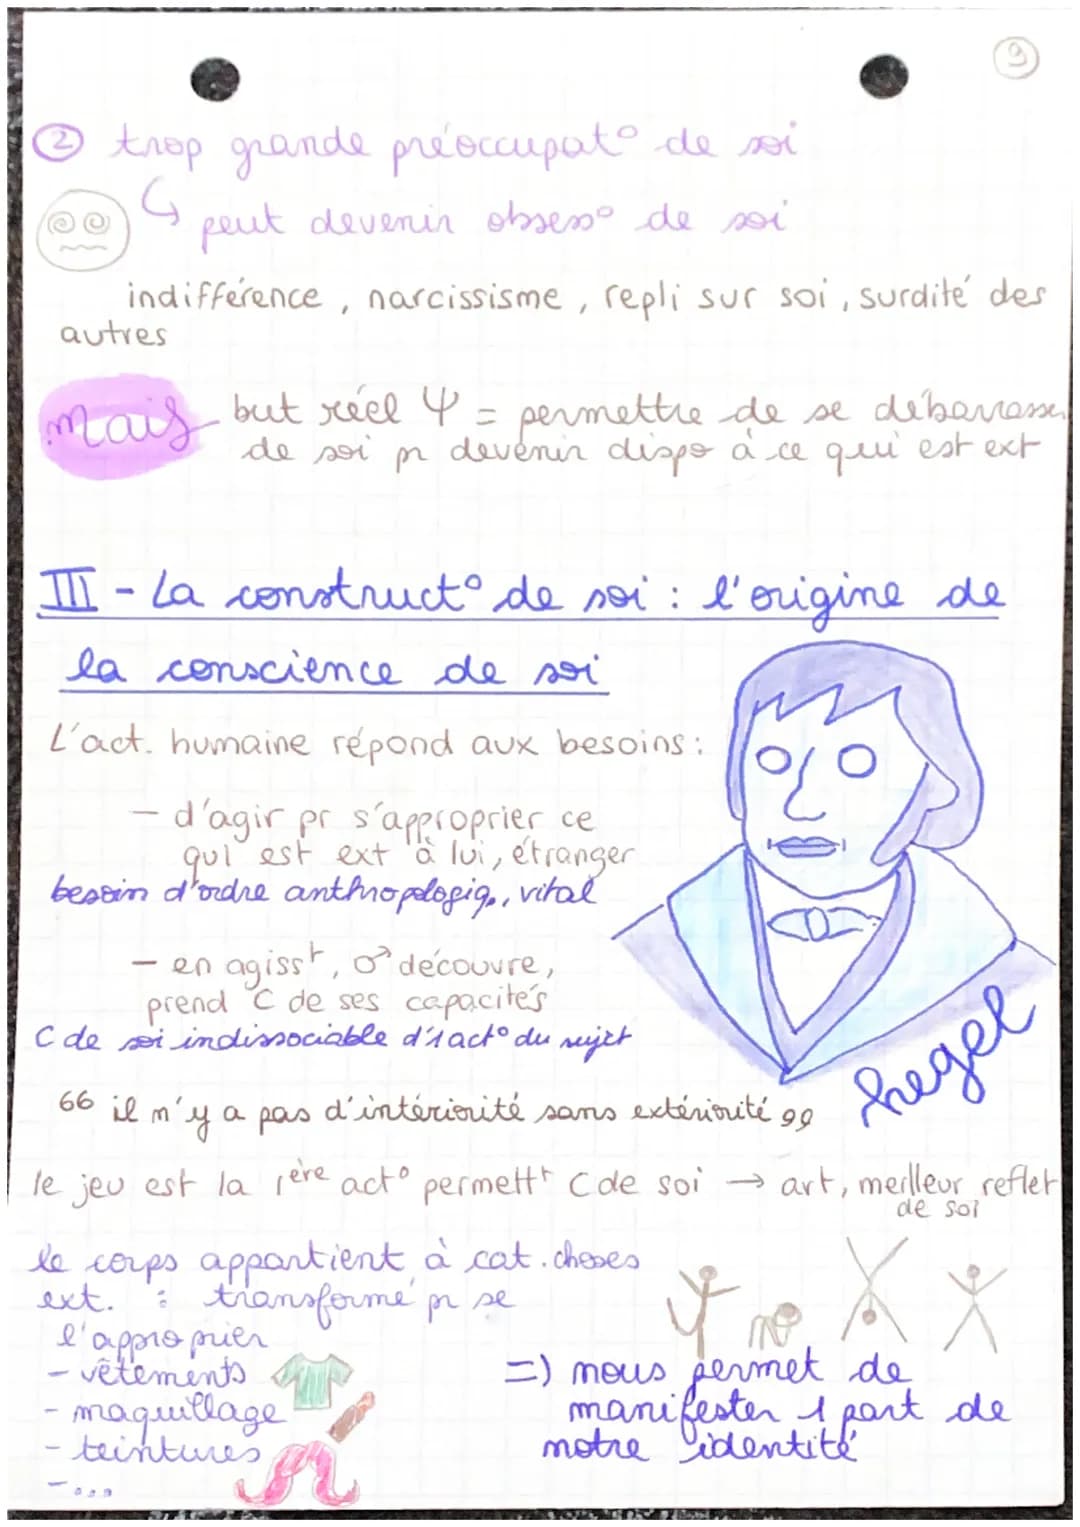 9
② trop grande préoccupat° de soi
↳ peut devenir obsess° de soi
indifférence, narcissisme, repli sur soi, surdité des
autres
Mais but réel Ψ = permettre de se débarrasser
de soi pr devenir dispo à ce qui est ext
III - La construct° de soi : l'origine de
la conscience de soi
L'act. humaine répond aux besoins :
- d'agir pr s'approprier ce
qui est ext à lui, étranger
besoin d'ordre anthropologiq., vital
- en agisst, ♂ découvre,
prend C de ses capacités
C de soi indissociable d'1 act° du sujet
hegel
66 il n'y a pas d'intériorité sans extériorité 99
le jeu est la 1ère act° permettt C de soi → art, meilleur reflet
de soi
le corps appartient à cat. choses
ext. : transformé pr se
l'approprier
- vêtements
- maquillage
- teintures
- ...
=) nous permet de
manifester 1 part de
notre identité